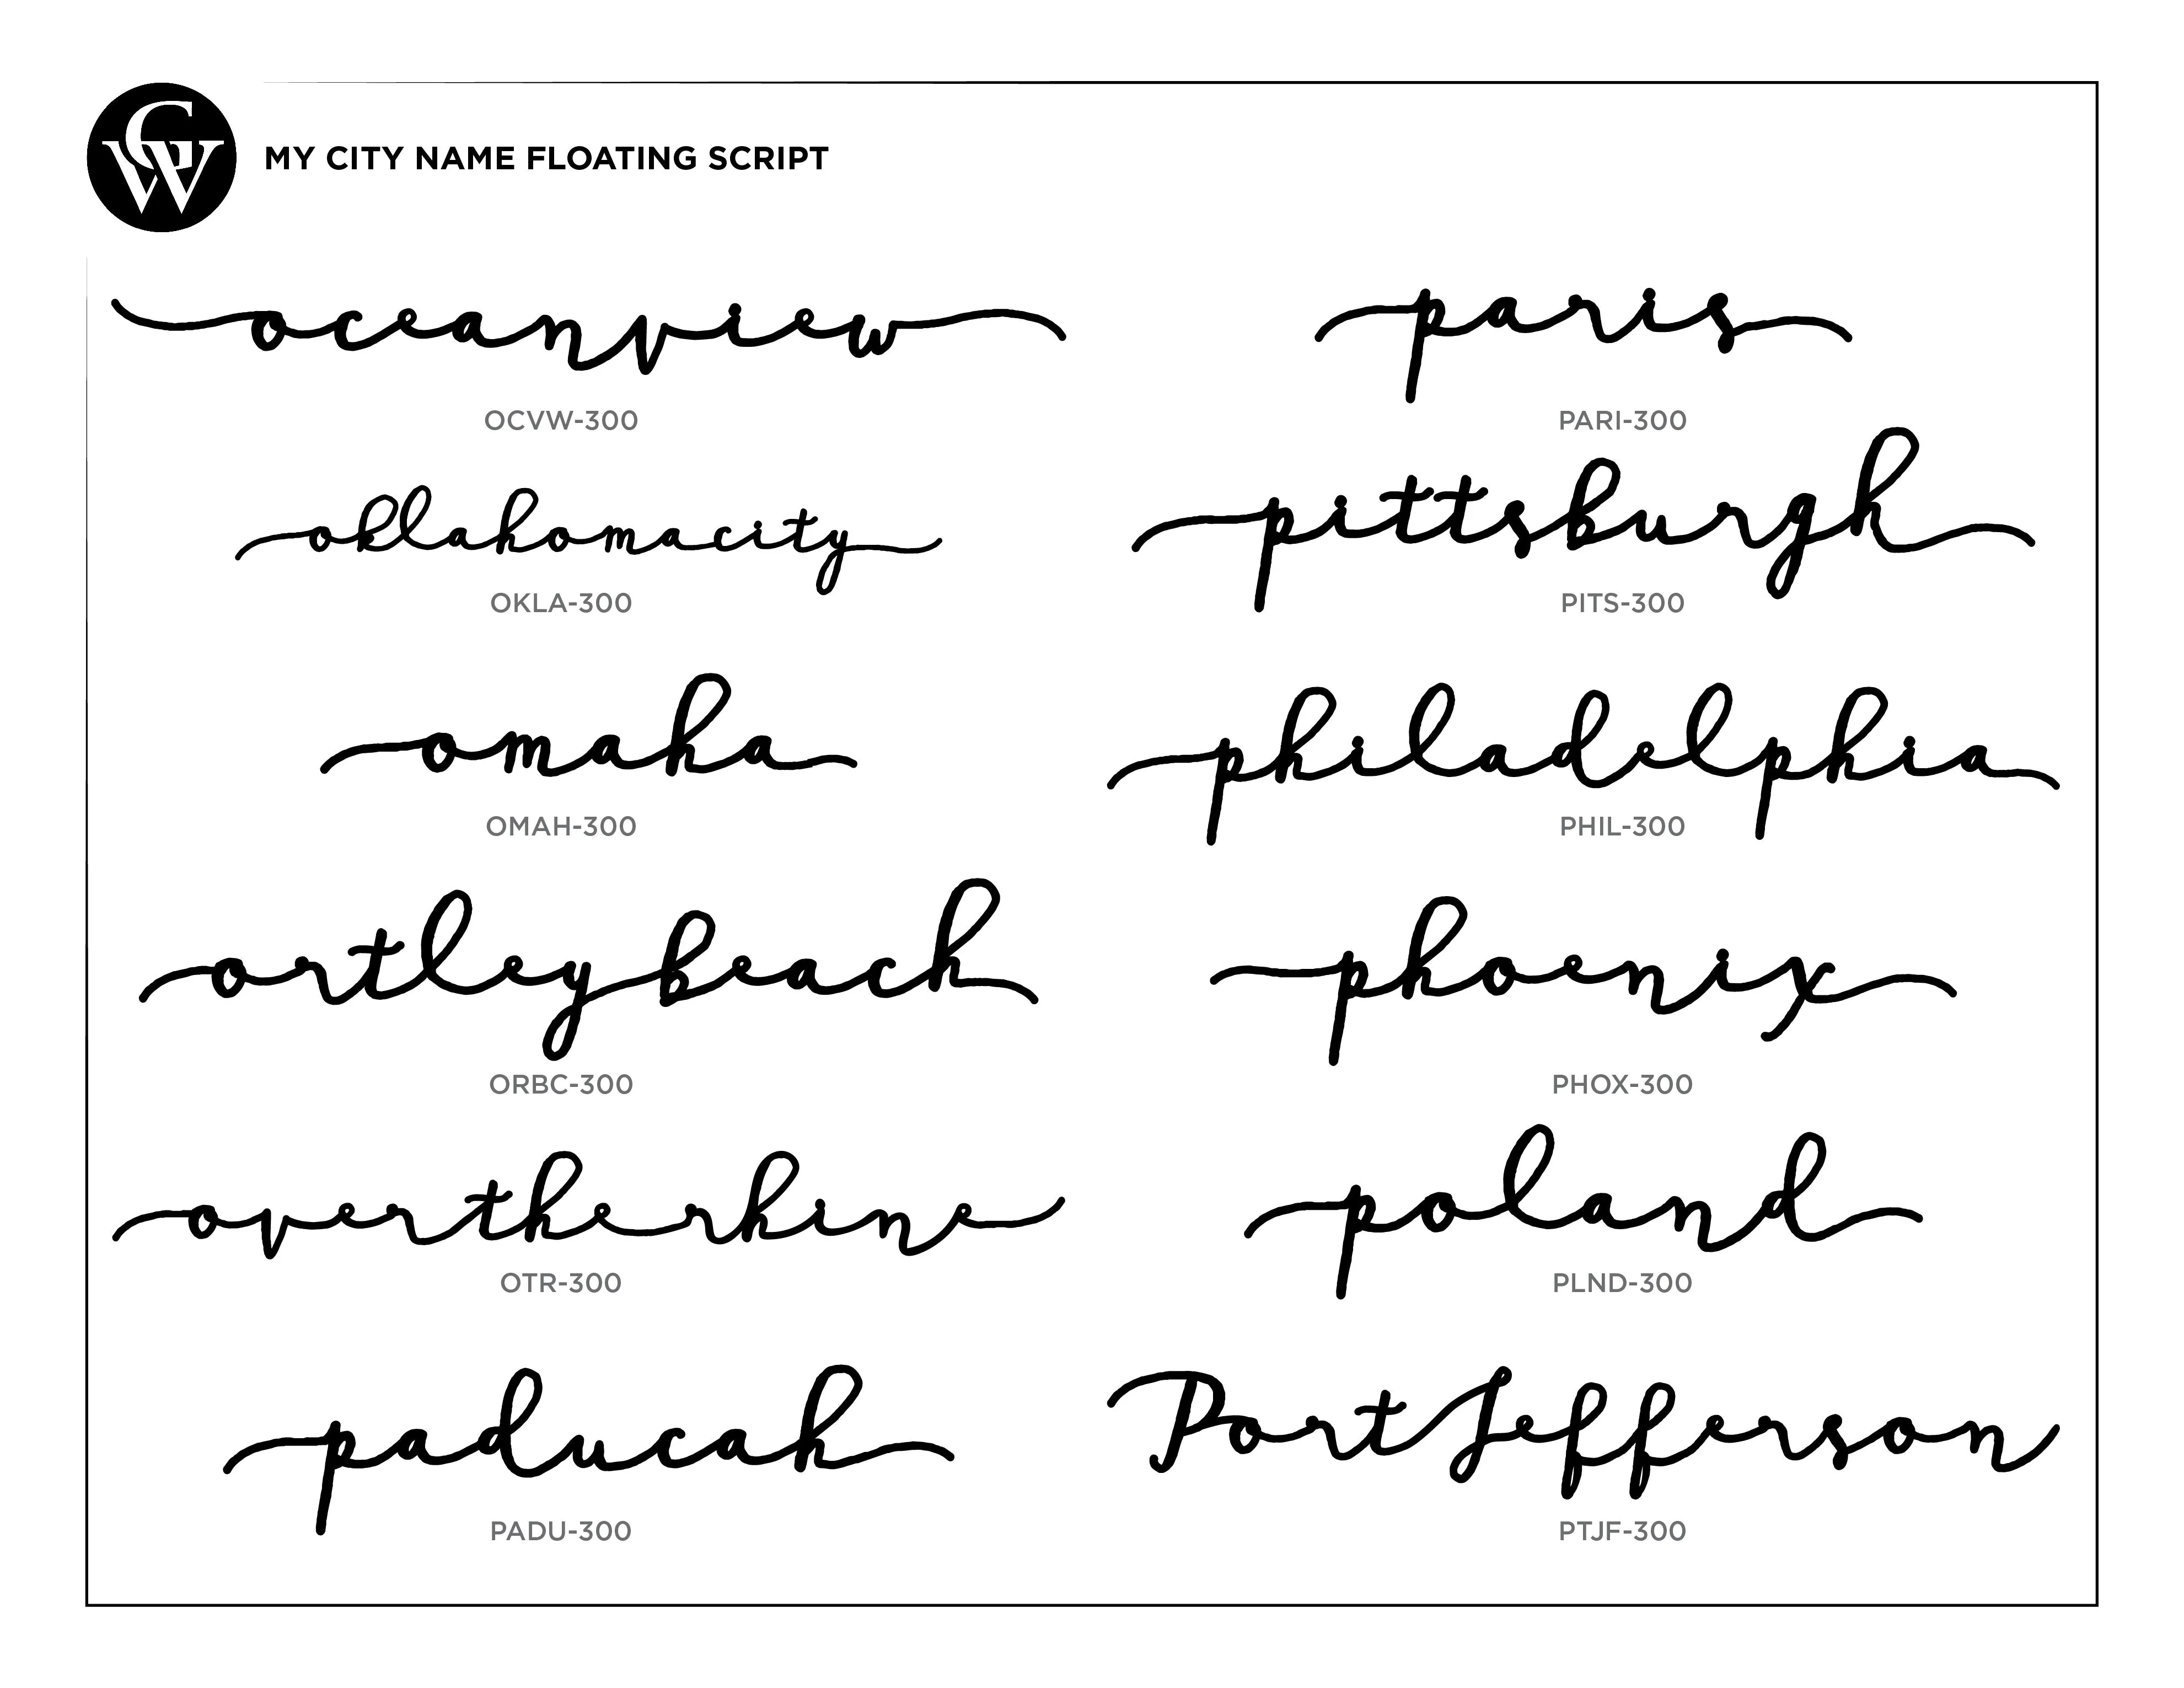 CW
MY CITY NAME FLOATING SCRIPT
oceanview
OCVW-300
paris
PARI-300
oklahomacity
OKLA-300
pittsburgh
PITS-300
omaha
OMAH-300
philadelphia
PHIL-300
ortleybeach
ORBC-300
phoenix
PHOX-300
overtherhine
OTR-300
poland
PLND-300
paducah
PADU-300
PortJefferson
PTJF-300